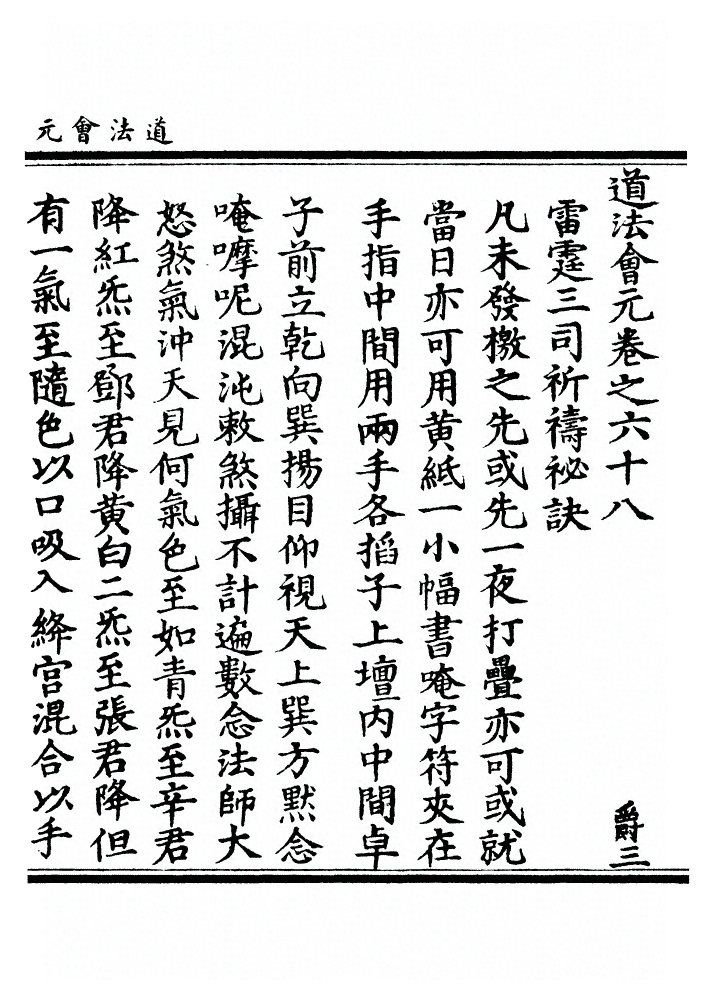 道法會元
道法會元卷之六十八 爵三
雷霆三司祈禱祕訣
凡未發檄之先或先一夜打疊亦可或就
當日亦可用黄紙一小幅書唵字符夾在
手指中間用兩手各搯子上壇内中間卓
子前立乾向巽揚目仰視天上巽方默念
唵嚤呢混沌敕煞攝不計遍數念法師大
怒煞氣沖天見何氣色至如青炁至辛君
降紅炁至鄧君降黄白二炁至張君降但
有一氣至隨色以口吸入絳宫混合以手